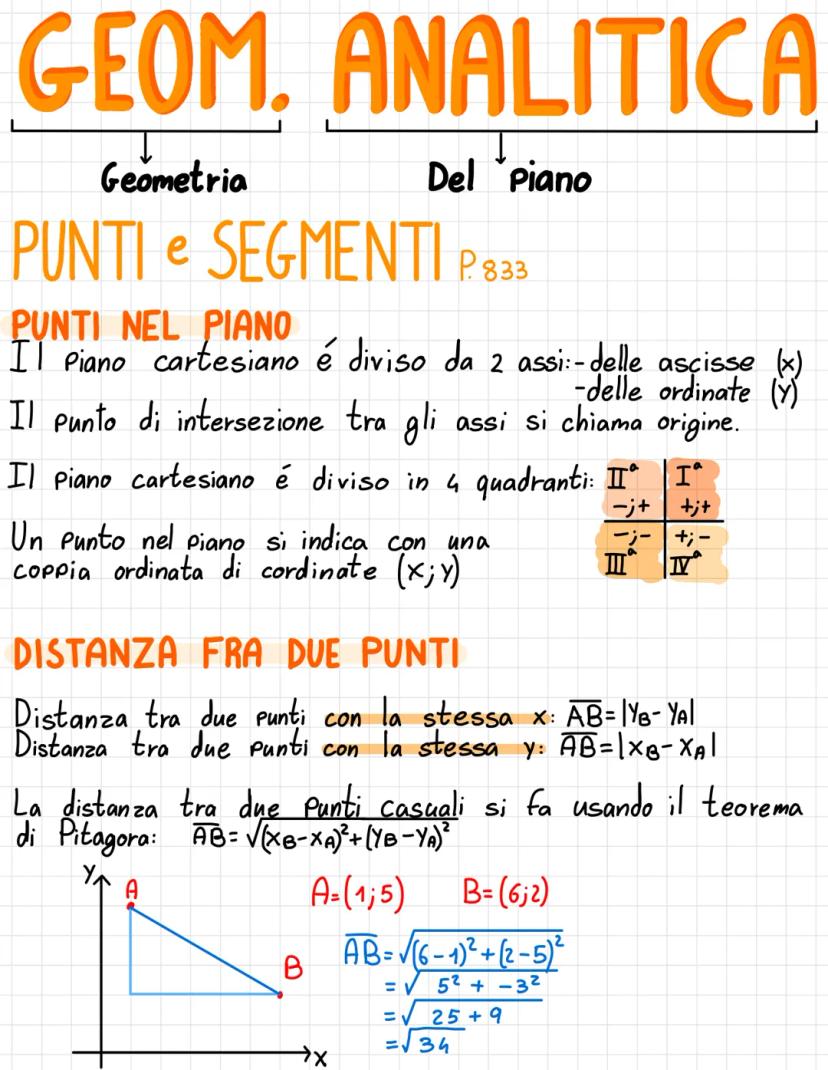 GEOM. ANALITICA
Geometria Del piano
PUNTI e SEGMENTI P.833
PUNTI NEL PIANO
Il piano cartesiano é diviso da 2 assi:-delle ascisse (x)
-delle ordinate (Y)
Il punto di intersezione tra gli assi si chiama origine.
Il piano cartesiano é diviso in 4 quadranti:
IIª Iª
-;+ +;+
-;- +;-
IIIª IVª
Un punto nel piano si indica con una
coppia ordinata di cordinate (x;y)
DISTANZA FRA DUE PUNTI
Distanza tra due punti con la stessa x: A̅B̅=|YB-YA|
Distanza tra due punti con la stessa y: A̅B̅=|XB-XA|
La distanza tra due punti casuali si fa usando il teorema
di Pitagora: A̅B̅=√(XB-XA)²+(YB-YA)²
Y
A
B
X
A=(1;5) B=(6;2)
A̅B̅=√(6-1)²+(2-5)²
=√5² + -3²
=√25+9
=√34